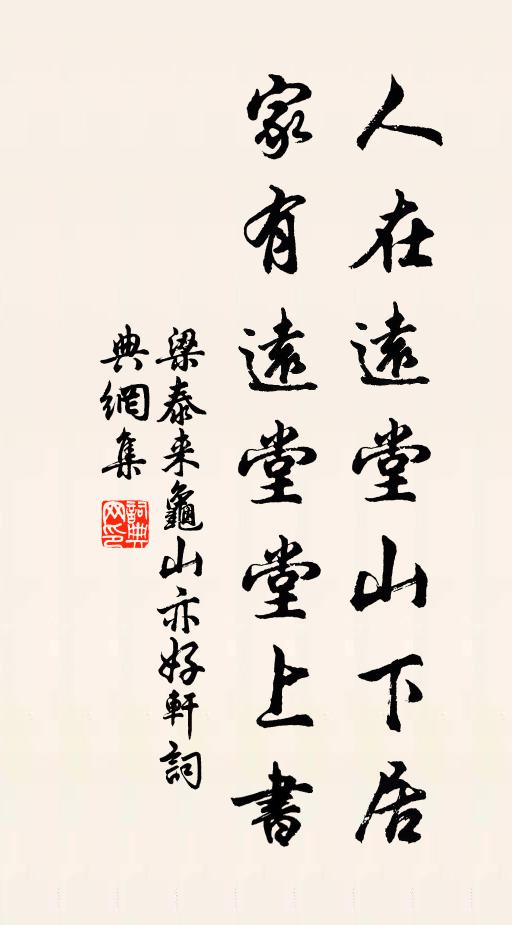 人在遠堂山下居
家有遠堂堂上書
梁泰来龜山亦好軒詞
典網集
詞典网印